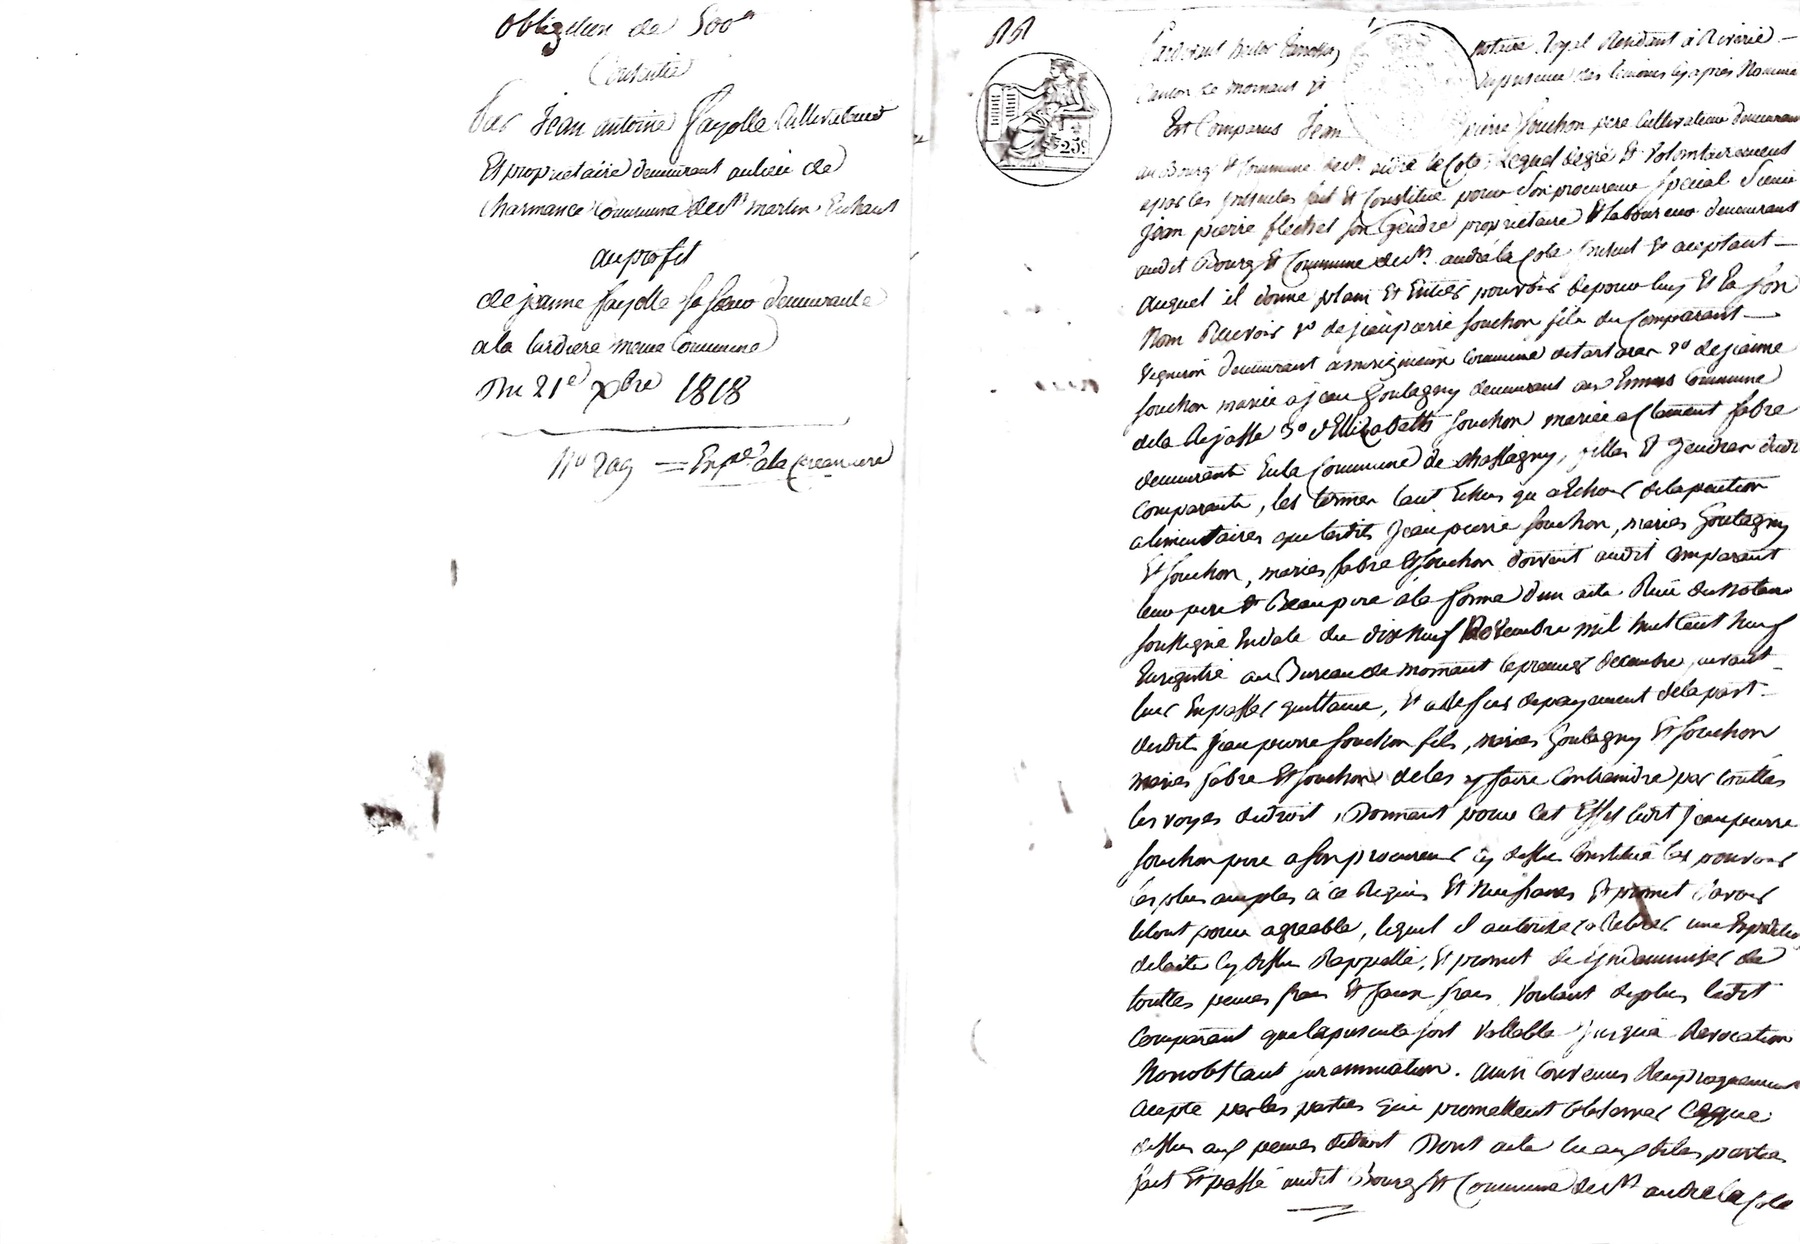 obligation de 500 ff
Consentie
Par Jean antoine fayolle Cultivateur
Et proprietaire demeurant au lieu de
Charmance Commune de St. martin Enhaut
au profit
de jeanne fayolle sa soeur demeurante
a la lardiere meme Commune
Du 21e Xbre 1818
No 209 = Expée a la creanciere
Pardevant notaire Royal Residant à Riverie
Canton de mornant En presence des temoins cy après Nommés
Est Comparus Jean pierre souchon pere Cultivateur demeurant
au Bourg Et Commune de St. andré la Cote, Lequel de gré Et Volontairement
a par les presentes fait Et Constitué pour son procureur special Sieur
jean pierre flechet son Gendre proprietaire Et laboureur demeurant
audit Bourg Et Commune de St. andré la Cote present Et aceptant
auquel il donne plain Et Entier pouvoir de pour luy Et En son
Nom Recevoir 1o de jean pierre souchon fils du Comparant
Vigneron demeurant a Commune de tartaras 2o de jeanne
souchon mariée a jean Goutagny demeurant aux Commune
de la Rajasse 3o d'Elizabeth souchon mariée a Clement fabre
demeurant En la Commune de Chassagny, filles Et Gendres dudit
Comparant, les termes tant Echus qu a Echoir de la pention
alimentaires que lesdits jean pierre souchon, mariés Goutagny
Et souchon, mariés fabre Et souchon doivent audit Comparant
leur pere Et Beaupere a la forme d'un acte Reçu du Notaire
soussigné En date du dix Neuf Novembre mil huit Cent Neuf
Enregistré au Bureau de mornant le premier decembre suivant
leur En passer quittance, Et a deffaut de payement de la part
desdits jean pierre souchon fils, mariés Goutagny Et souchon
mariés fabre Et souchon de les y faire Contraindre par touttes
les voyes de droit, Donnant pour Cet Effet ledit jean pierre
souchon pere a son procureur cy dessus Constitué les pouvoirs
les plus amples à ce Requis Et Necessaires Et promet d'avoir
le tout pour agreable, lequel il autorise a Retirer une Expedition
de l'acte cy dessus Rappellé, Et promet de l'jndemniser de
touttes peines frais Et faux frais Voulant de plus ledit
Comparant que la presente soit Vallable jusqu'à Revocation
Nonobstant surannation. ainsi Convenus Reciproquement
acepté par les parties qui promettent l'observer Ceque
dessus aux peines de droit Dont acte lu aux dites parties
fait Et passé audit Bourg Et Commune de St. andré la Cote